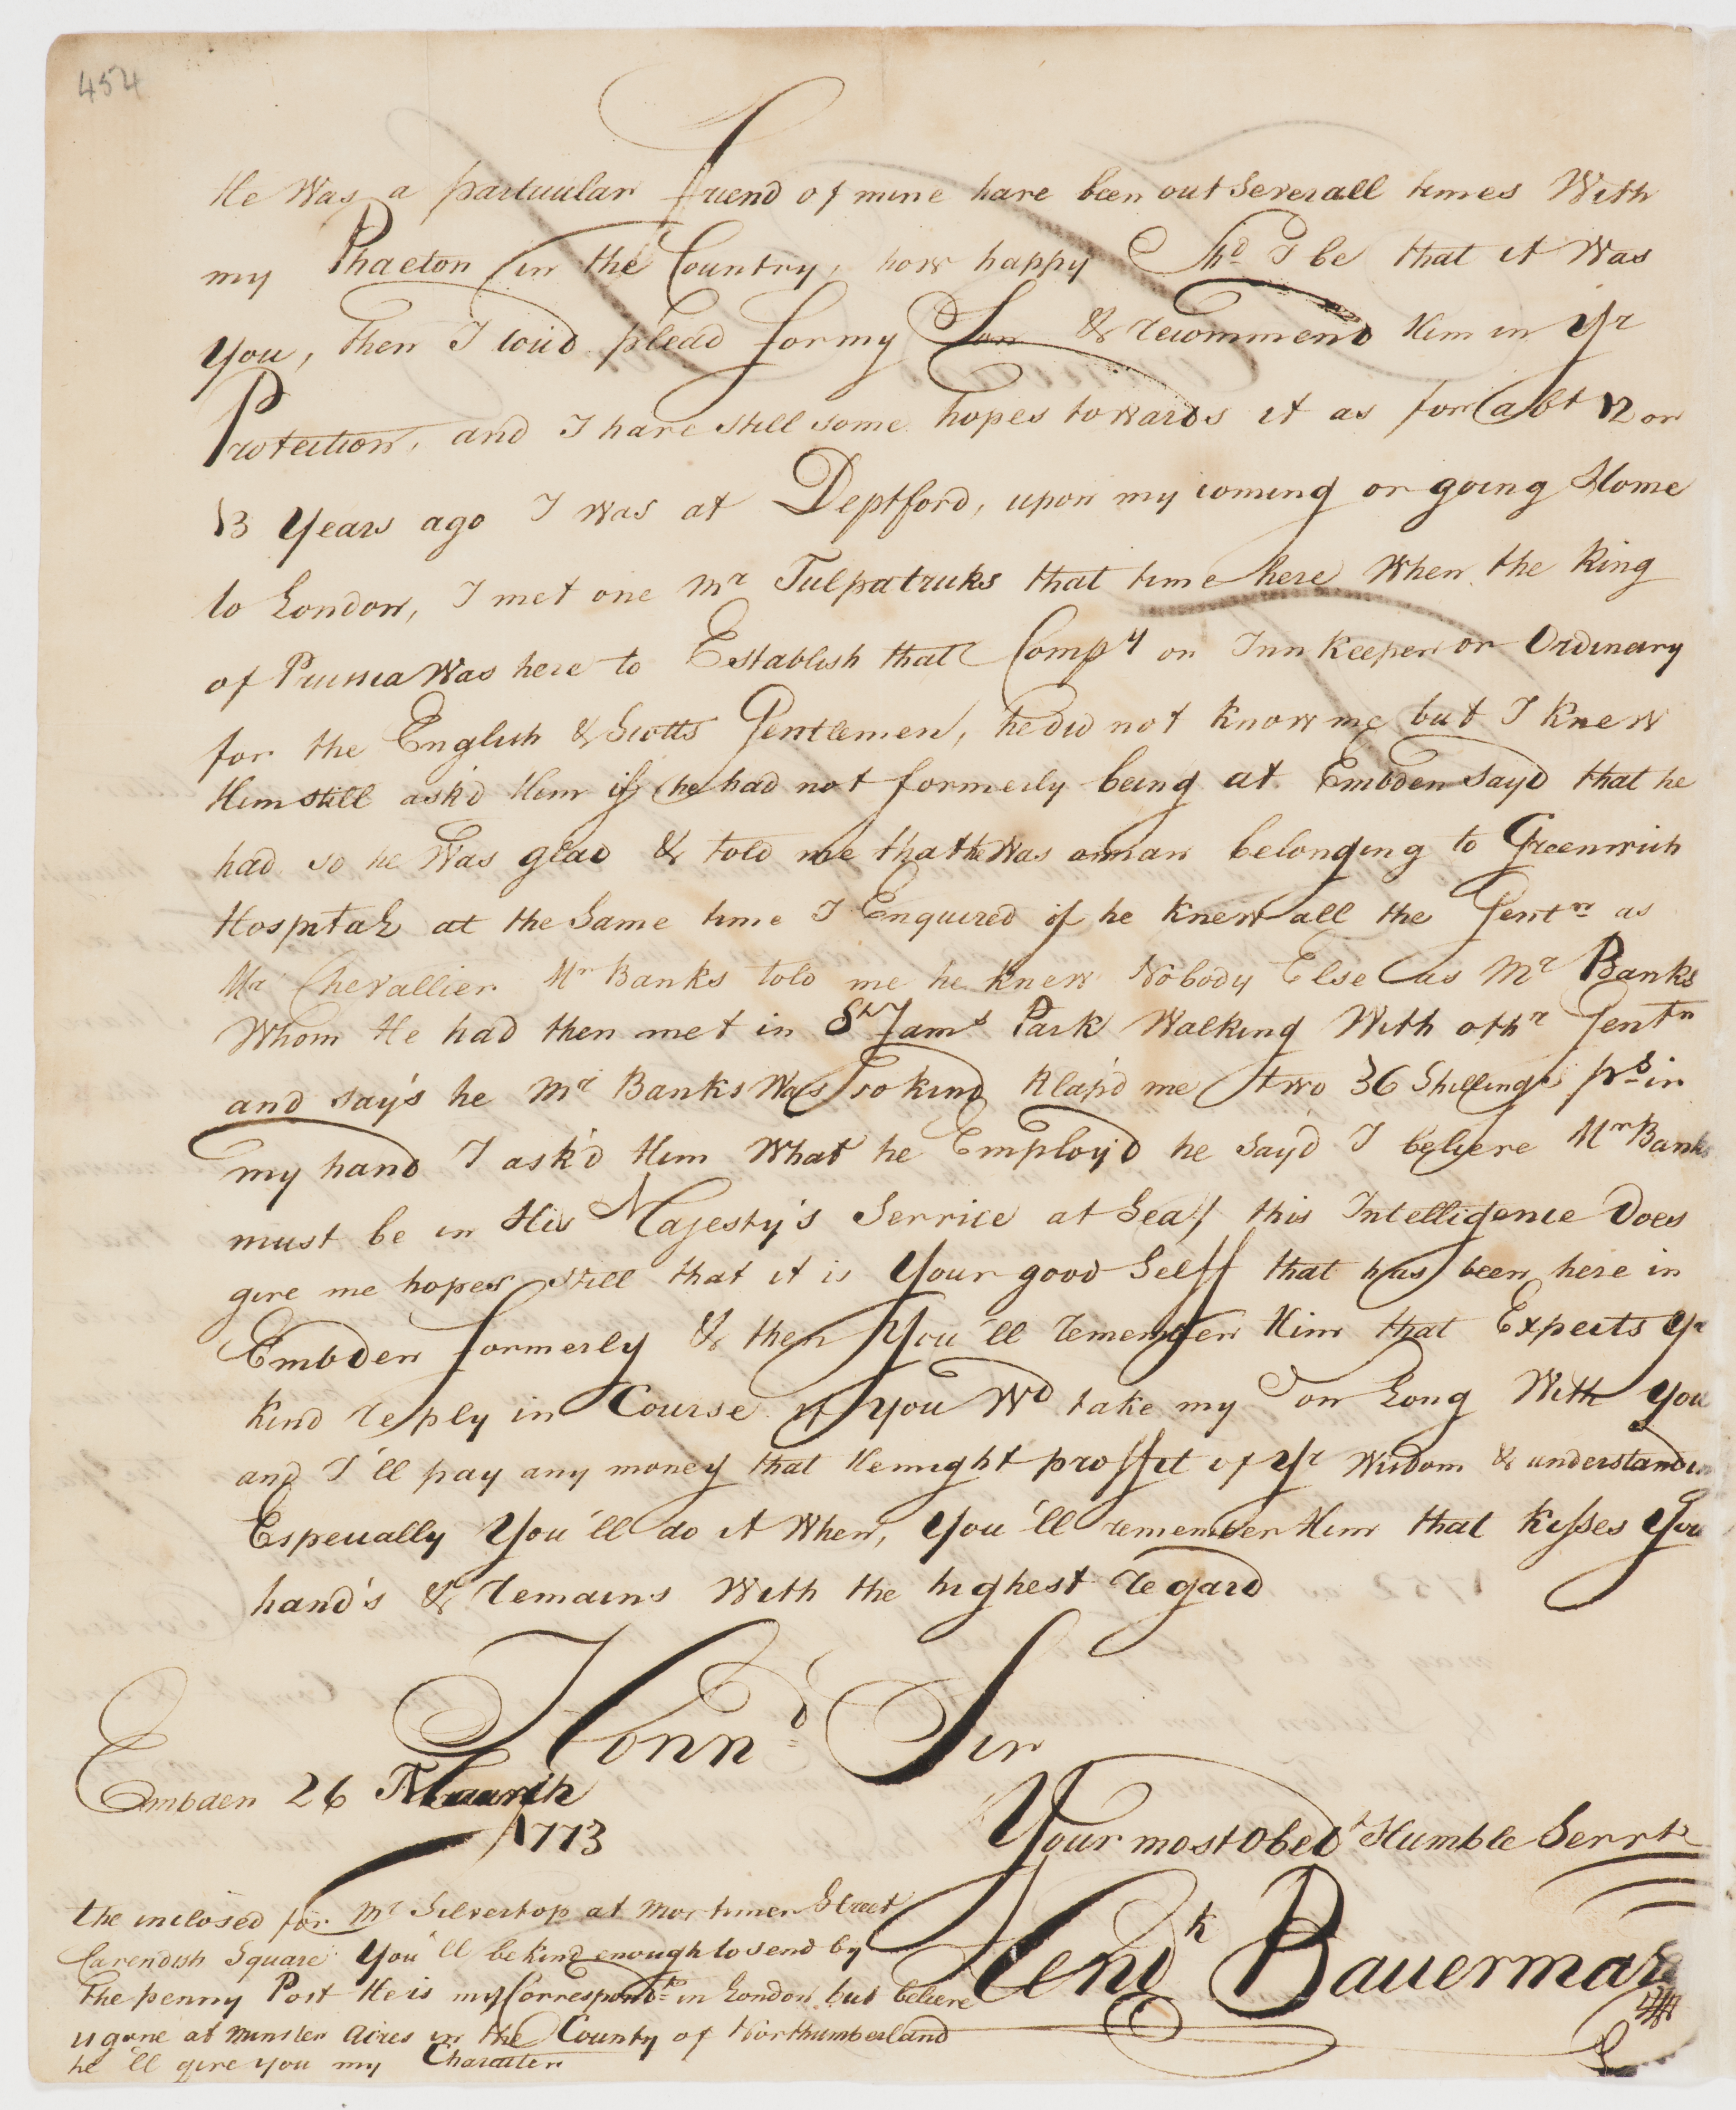 454
He Was a particular friend of mine have been out Severall times With
my Phaeton in the Country, how happy Shd I be that it Was
you, then I wud plead for my Son & recommend Him in Yr
Protection, and I have still some hopes towards it as for abt 12 or
13 Years ago I was at Deptford, upon my coming or going Home
to London, I met one Mr Tulpatricks that time here When the King
of Prussia Was here to Establish that Compy on Inn Keeper or Ordinary
for the English & Scotts Gentlemen, he did not know me but I knew
Him still ask'd Him if he had not formerly being at Embden Sayd that he
had so he Was glad & told me that he Was a man belonging to Greenwich
Hospital at the Same time I Enquired if he knew all the Gentn as
Mr Chevallier Mr Banks told me he knew Nobody Else as Mr Banks
Whom He had then met in St Jams Park Walking With othr Gentn
and say's he Mr Banks Was so kind Klap'd me two 36 Shillings ps in
my hand I ask'd Him What he Employ'd he Say'd I believe Mr Banks
must be in His Majesty's Service at Sea, this Intelligence Does
give me hopes still that it is Your good Selff that has been here in
Embden formerly & then You'll remember Him that Expects Yr
kind reply in Course if you Wd take my Son Long With you
and I'll pay any money that He might proffit of Yr Wisdom & understanding
Especially You'll do it When, You'll remember Him that kisses Your
hand's & remains With the highest regard
Honnd Sir
Embden 26 March
1773
Your most Obedt Humble Servt
Hendk Bauerman
the inclosed for Mr Silvertop at Mortimer Street
Cavendish Square You'll be kind enough to send by
the penny Post He is my Correspondt in London but believe
is gone at Minster Acres in the County of Northumberland
he'll give you my Character